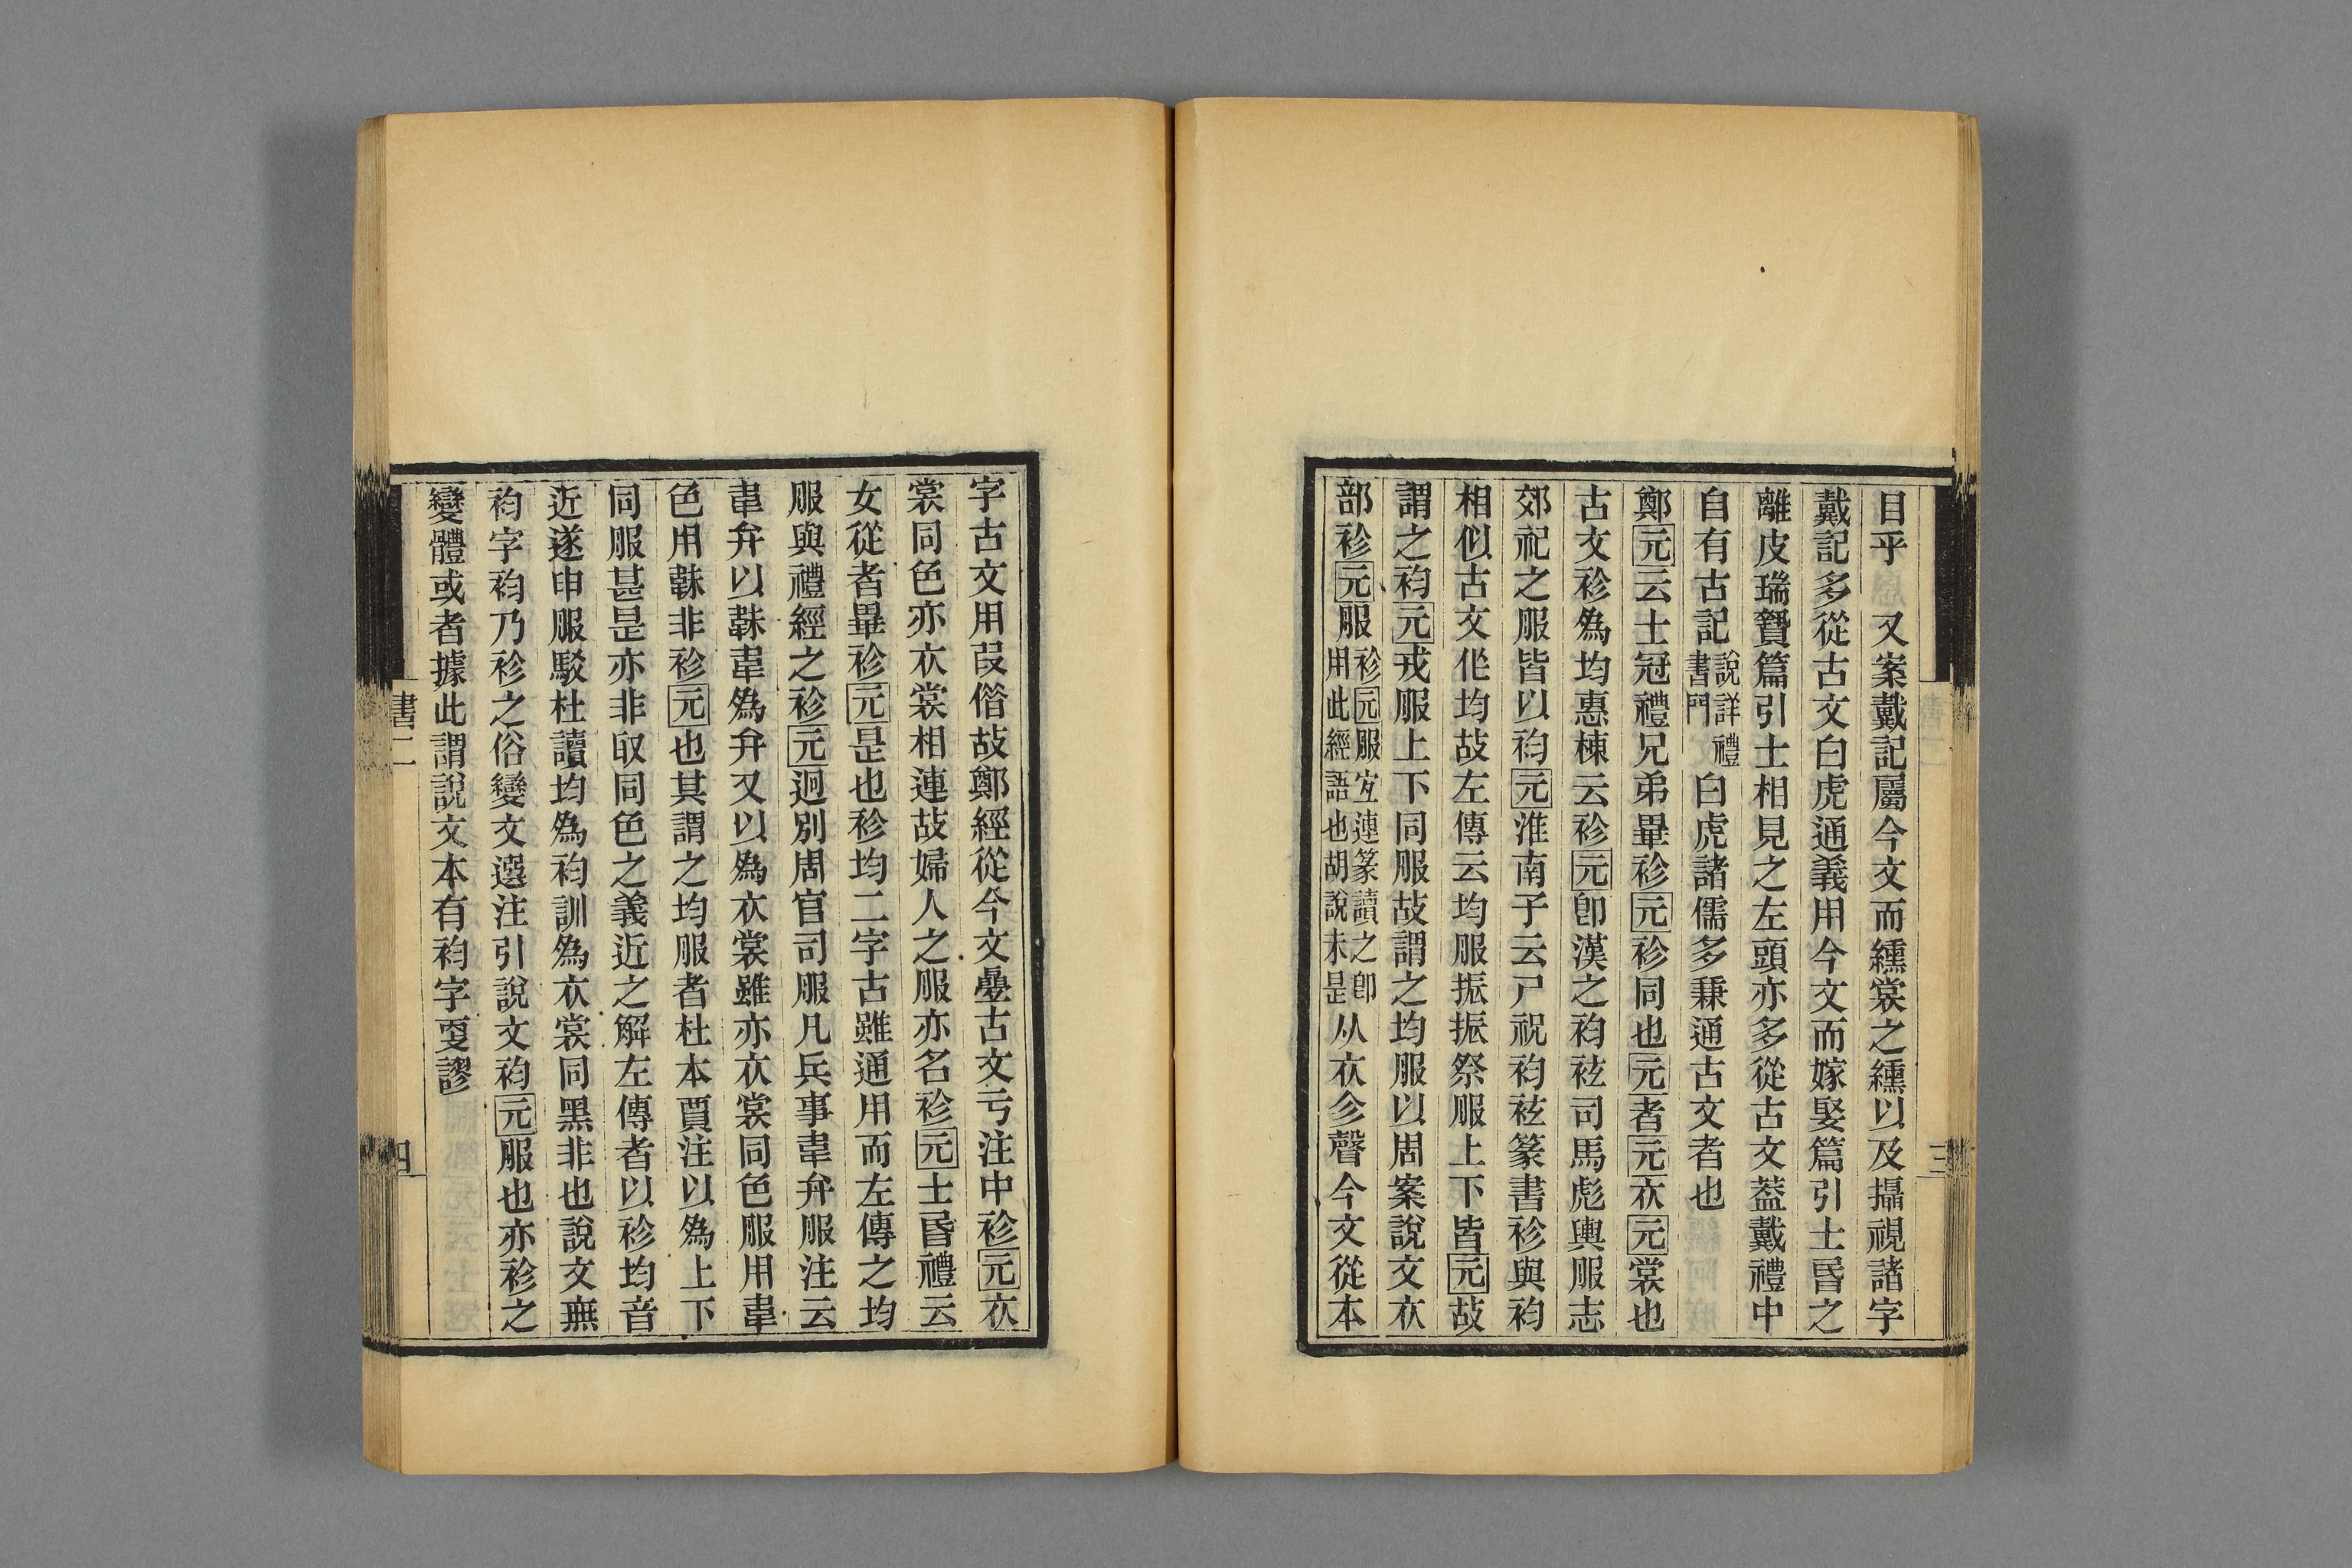 目乎　又案戴記屬今文而纁裳之纁以及攝視諸字
戴記多從古文白虎通義用今文而嫁娶篇引士昏之
離皮瑞贄篇引士相見之左頭亦多從古文葢戴禮中
自有古記說詳禮書門白虎諸儒多兼通古文者也
鄭元云士冠禮兄弟畢袗元袗同也元者元衣元裳也
古文袗爲均惠棟云袗元卽漢之袀袨司馬彪輿服志
郊祀之服皆以袀元淮南子云尸祝袀袨篆書袗與袀
相似古文作均故左傳云均服振振祭服上下皆元故
謂之袀元戎服上下同服故謂之均服以周案說文衣
部袗元服袗元服宜連篆讀之卽用此經語也胡說未是从衣㐱聲今文從本
字古文用叚借故鄭經從今文㬪古文亏注中袗元衣
裳同色亦衣裳相連故婦人之服亦名袗元士昏禮云
女從者畢袗元是也袗均二字古雖通用而左傳之均
服與禮經之袗元迥別周官司服凡兵事韋弁服注云
韋弁以韎韋爲弁又以爲衣裳雖亦衣裳同色服用韋
色用韎非袗元也其謂之均服者杜本賈注以爲上下
同服甚是亦非取同色之義近之解左傳者以袗均音
近遂申服駁杜讀均爲袀訓爲衣裳同黑非也說文無
袀字袀乃袗之俗變文選注引說文袀元服也亦袗之
變體或者據此謂說文本有袀字叓謬
書二
四
三